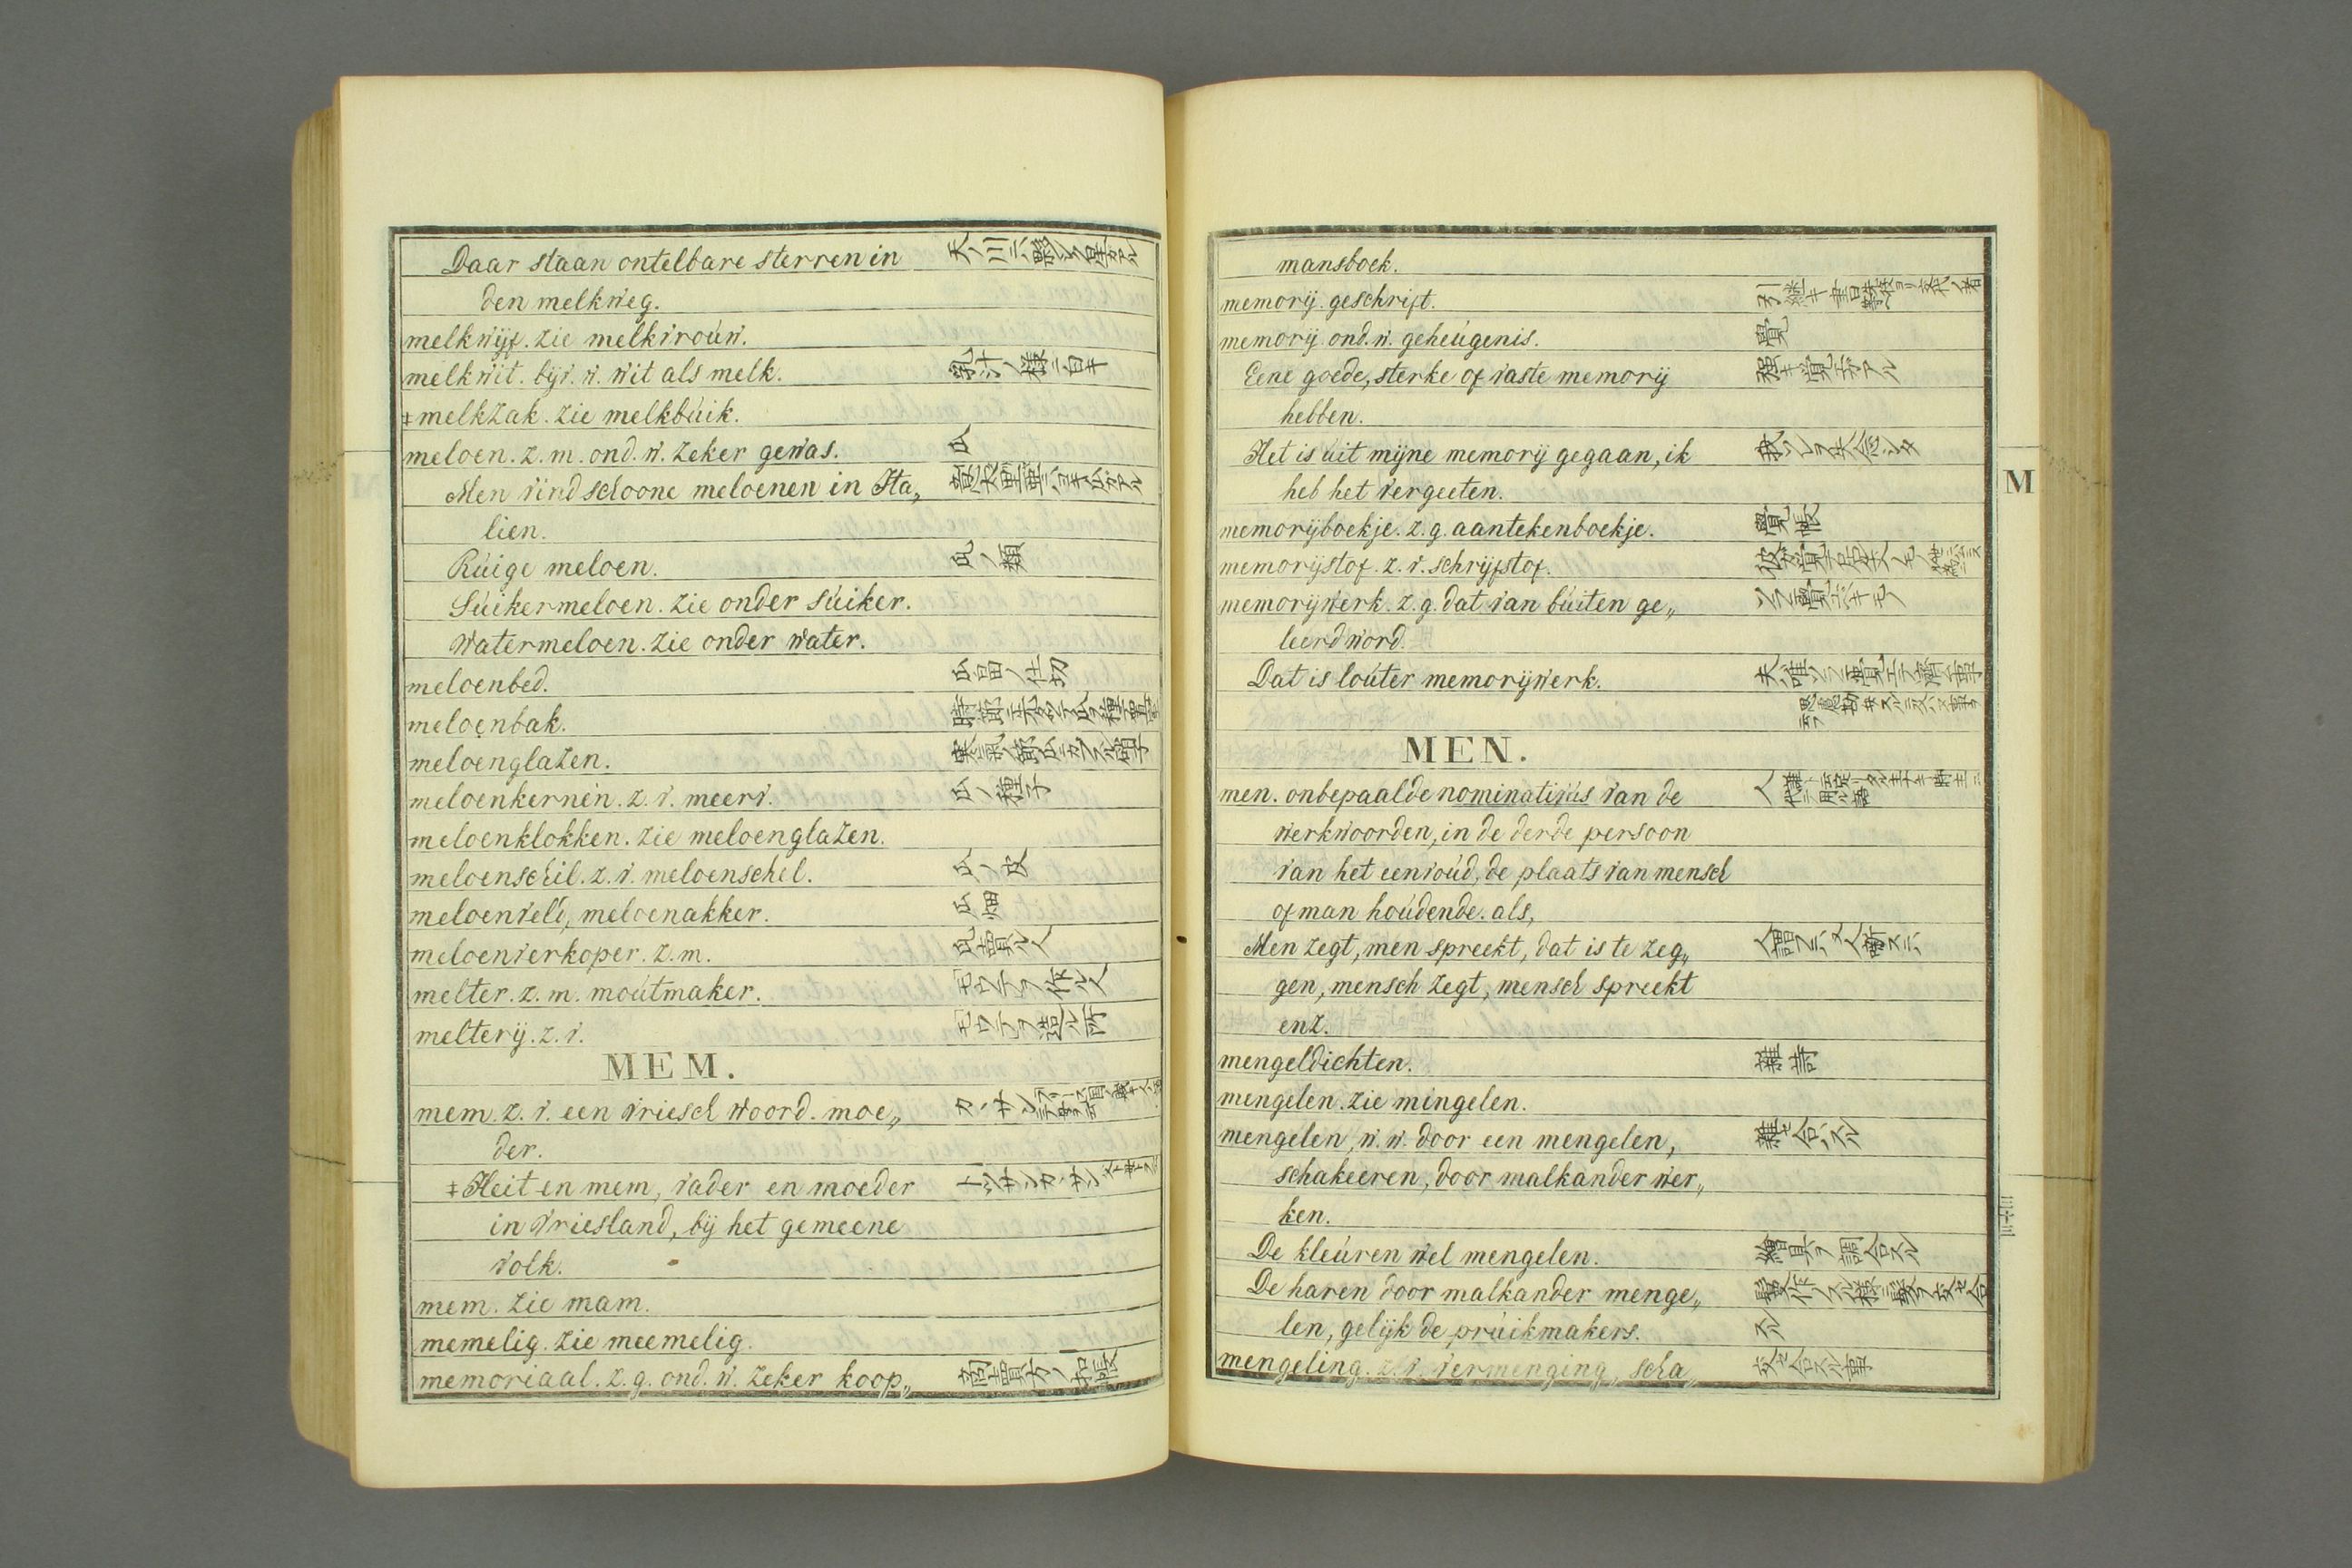 Daar staan ontelbare sterren in 天ノ川ニハ夥シク星ガアル
den melkweg.
melkwijf. zie melkvroúw.
melkwit. bijv. w. wit als melk. 乳汁ノ様ニ白キ
‡melkzak. zie melkbúik.
meloen. z. m. ond. w. zeker gewas. 瓜
Men vind schoone meloenen in Ita„ 意太里亜ニハヨキ瓜ガアル
lien.
Rúige meloen. 瓜ノ類
Súikermeloen. zie onder súiker.
Watermeloen. zie onder water.
meloenbed. 瓜畠ノ仕切
meloenbak.
meloenglazen.
meloenkernen. z. v. meerv. 瓜ノ種子
meloenklokken. zie meloenglazen.
meloenschil. z. v. meloenschel. 瓜ノ皮
meloenveld, meloenakker. 瓜畑
meloenverkoper. z. m. 瓜賣ル人
melter. z. m. moútmaker. モロテヲ作ル人
melterij. z. v. モロテヲ造ル所
MEM.
mem. z. v. een vriesch woord. moe„ カヽサン
der.
‡Heit en mem, vader en moeder トツサンカヽサン
in Vriesland, bij het gemeene
volk.
mem. zie mam.
memelig. zie meemelig.
memoriaal. z. g. ond. w. zeker koop„ 商賣方ノ扣帳
mansboek.
memorij. geschrift.
memorij. ond. w. geheúgenis. 覺
Eene goede, sterke of vaste memorij 強キ覚エガアル
hebben.
Het is úit mijne memorij gegaan, ik 我ソレヲ失念シタ
heb het vergeeten.
memorijboekje. z. g. aantekenboekje. 覺帳
memorijstof. z. v. schrijfstof.
memorijwerk. z. g. dat van búiten ge„ ソラニ覺ユベキモノ
leerd word.
Dat is loúter memorijwerk.
MEN.
men. onbepaalde nominativús van de
werkwoorden, in de derde persoon
van het eenvoúd, de plaats van mensch
of man hoúdende. als,
Men zegt, men spreekt, dat is te zeg„
gen, mensch zegt, mensch spreekt
enz.
mengeldichten. 雜詩
mengelen. zie mingelen.
mengelen, w. w. door een mengelen, 雜セ合ハスル
schakeeren, door malkander wer„
ken.
De kleúren wel mengelen. 繪具ヲ調合スル
De haren door malkander menge„ 鬘作ノスル様ニ髪ヲ交セ合
len, gelijk de prúikmakers. スル
mengeling. z. v. vermenging, scha„ 交セ合スル事
M